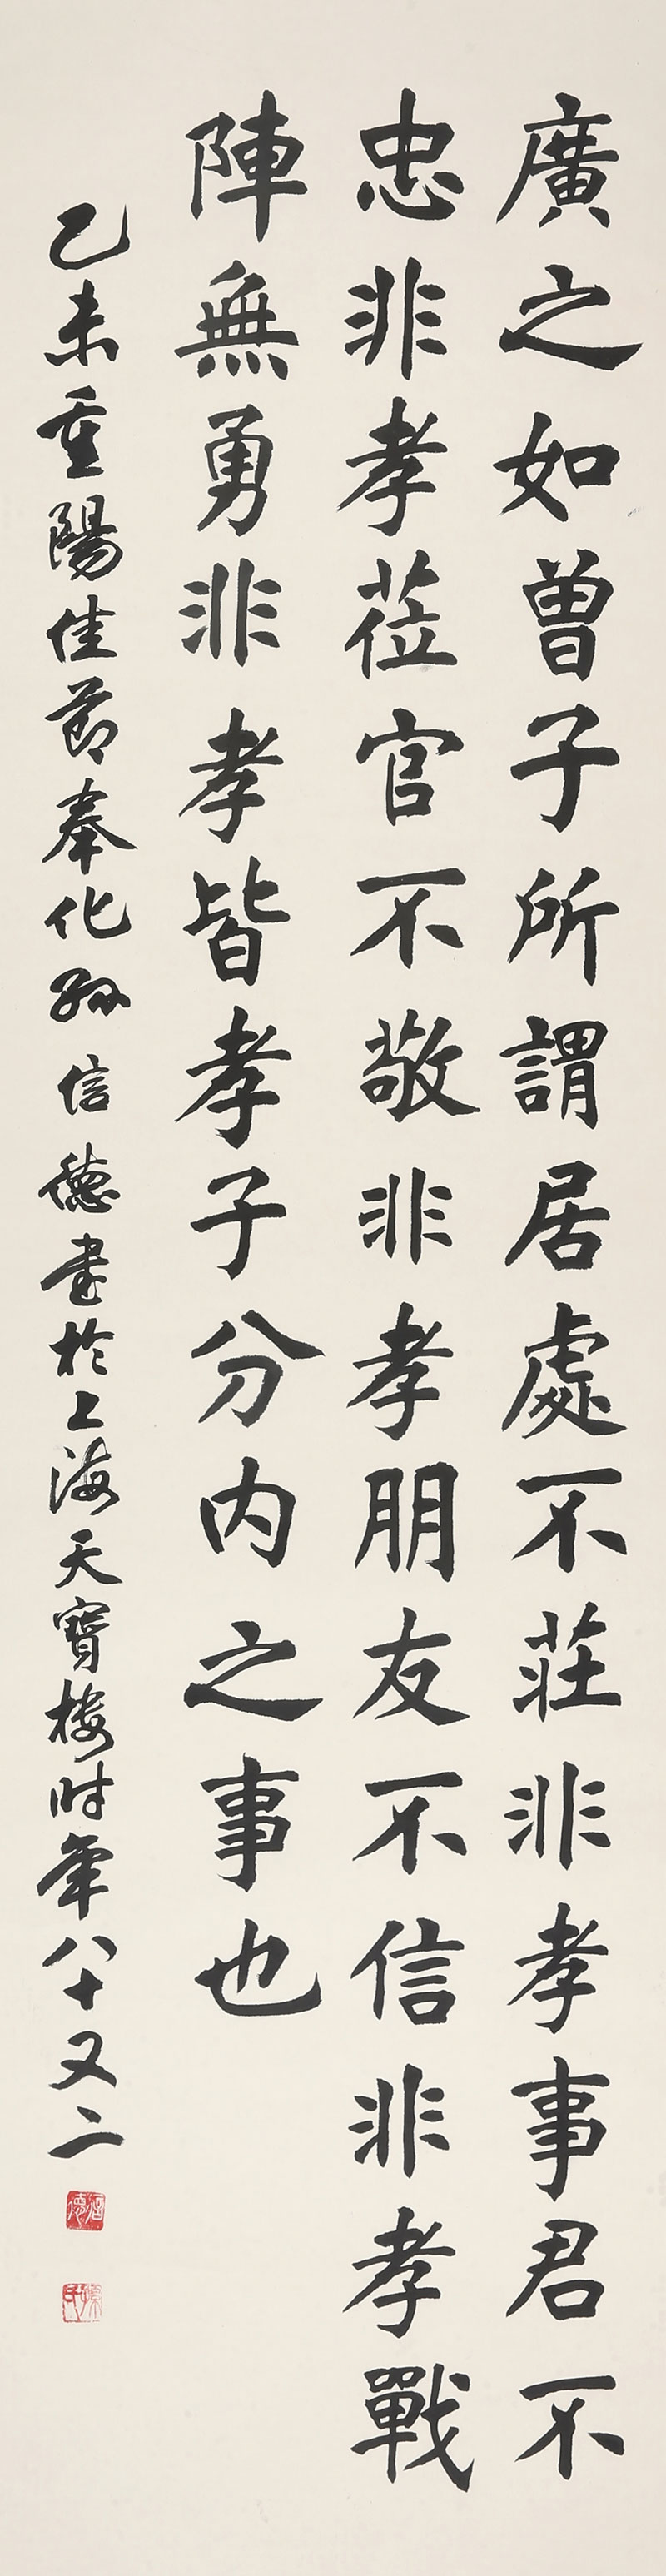 廣之如曾子所謂居處不莊非孝事君不
忠非孝莅官不敬非孝朋友不信非孝戰
陣無勇非孝皆孝子分內之事也
乙未重陽佳節奉化孫信德書於上海天寶樓時年八十又二
信德
孫氏